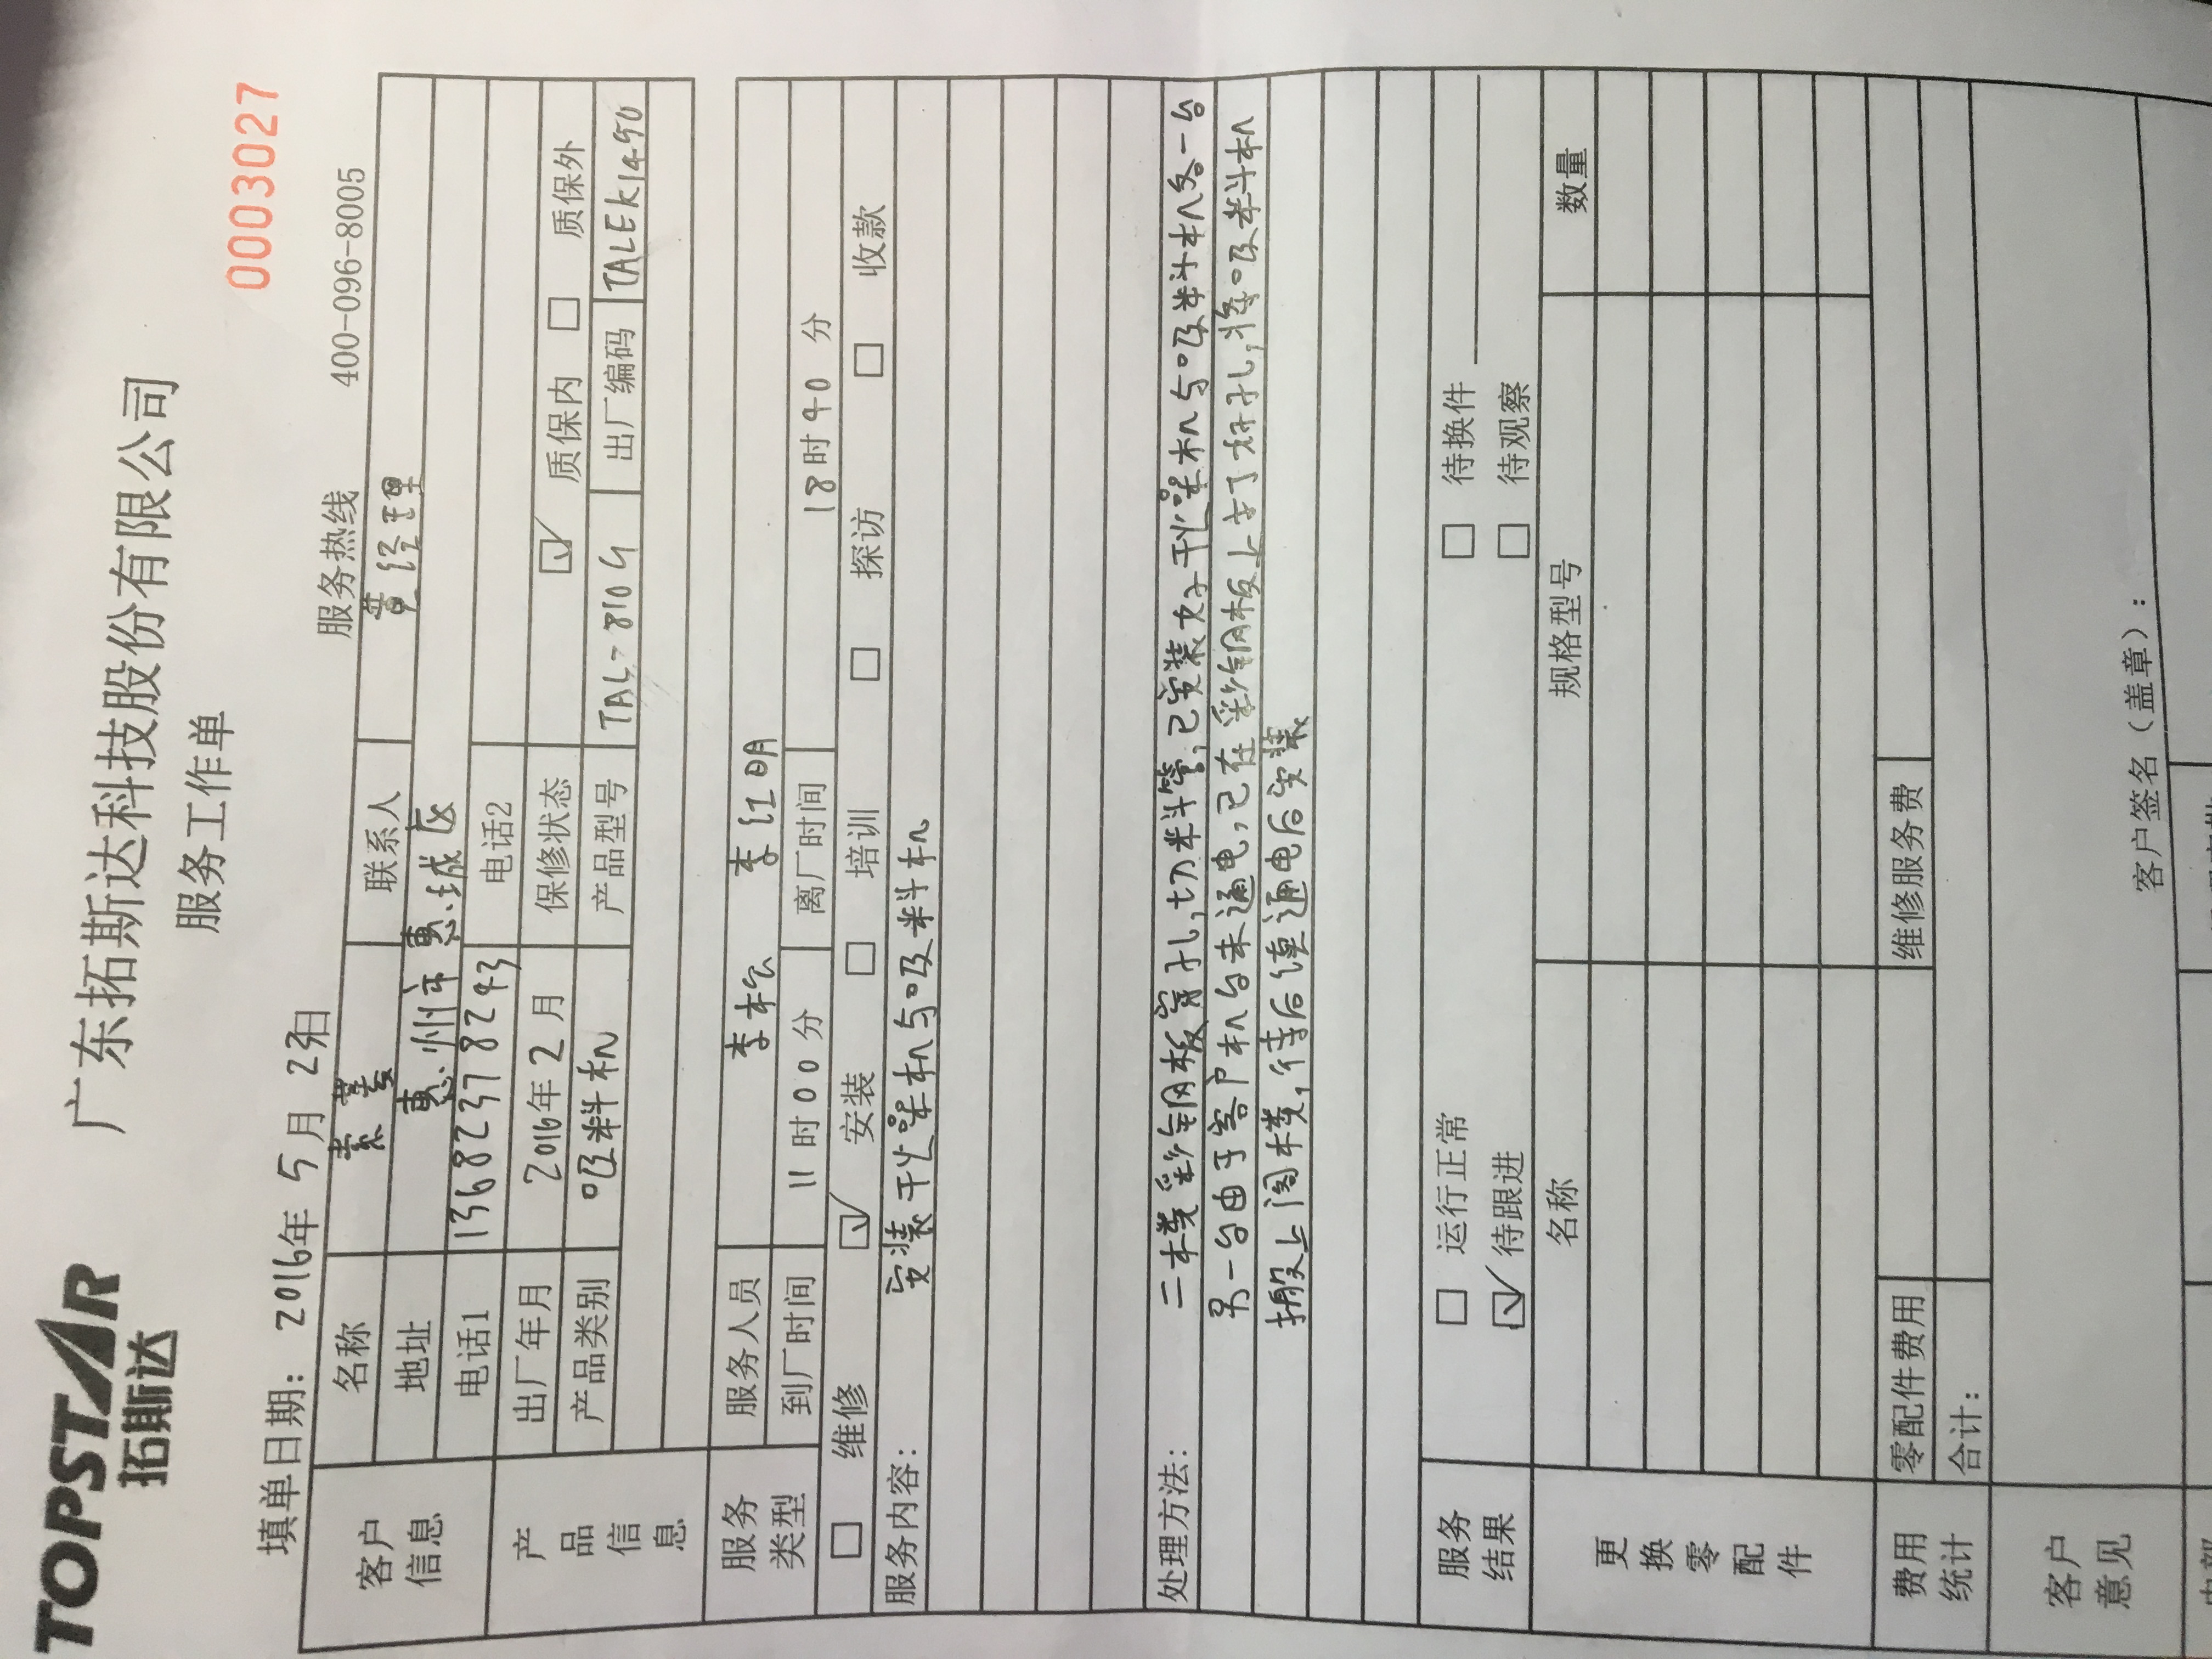 TOPSTAR
拓斯达
广东拓斯达科技股份有限公司
服务工作单
0003027
填单日期: 2016年 5月 23日
服务热线 400-096-8005
客户信息
名称 联系人 黄经理
地址 惠州市惠城区
电话1 13682378293 电话2
产品信息
出厂年月 2016年2月 保修状态 ☑ 质保内 □ 质保外
产品类别 吸料机 产品型号 TAL-810G 出厂编码
服务类型
服务人员 李松 李红明
到厂时间 11时00分 离厂时间 18时40分
□ 维修 ☑ 安装 □ 培训 □ 探访 □ 收款
服务内容: 安装干燥机与吸料机
处理方法: 二楼彩钢板穿孔,切料管,已安装好干燥机与吸料机各一台
另一台由于客户机台未通电,已在彩钢板上打了好孔,将吸料机
搬上阁楼,待后续通电后安装
服务结果
□ 运行正常 □ 待换件
☑ 待跟进 □ 待观察
更换零配件
名称 规格型号 数量
费用统计
零配件费用 维修服务费
合计:
客户意见
客户签名（盖章）: